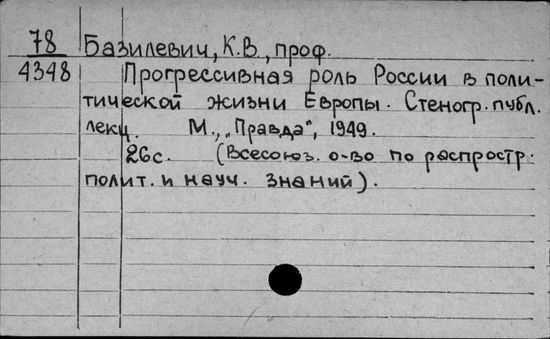 78
4348
Базилевич, К.В., проф.
Прогрессивная роль России в поли-
тической жизни Европы. Стеногр. публ.
лекц. М., „Правда", 1949.
26с. (Всесоюз. о-во по распростр.
полит. и науч. знаний).